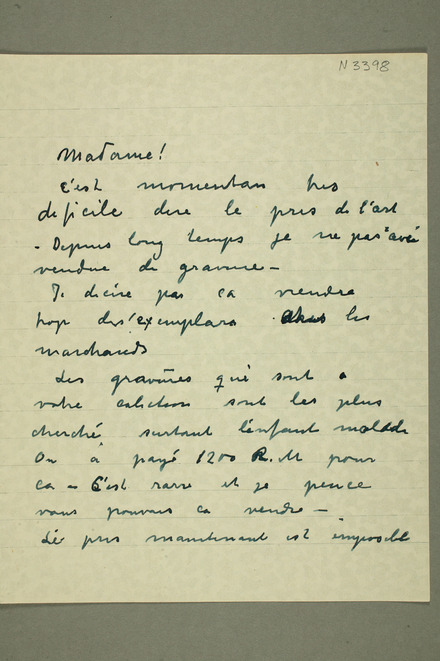 N 3398
Madame!
C'est momentan tres
deficile dire le pris de l'art
- Depuis long temps je ne pas avei
vendue de gravure -
Je desire pas ca vendre
trop des exemplars chus les
marchands
Les gravures qui sont a
votre colection sont les plus
cherché, surtout l'enfant malade
On a payé 1200 R.M pour
ca - C'est rare et je pence
vous pouvais ca vendre -
Lé pris maintenant est imposible